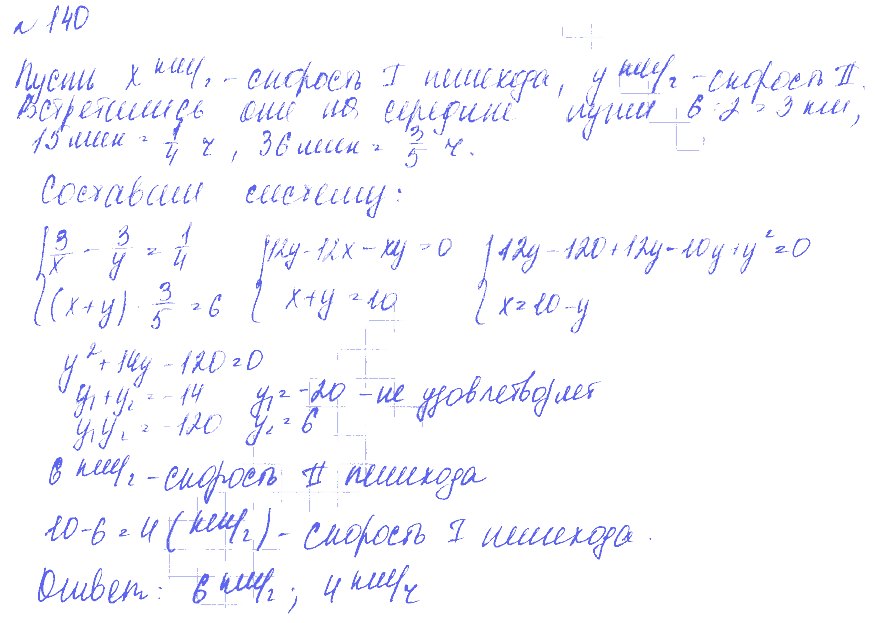 № 140
Пусть x км/ч - скорость I пешехода, y км/ч - скорость II.
Встретились они на середине пути 6:2=3 км,
15 мин = 1/4 ч, 36 мин = 3/5 ч.
Составим систему:
{ 3/x - 3/y = 1/4 { 12y-12x-xy=0 { 12y-120+12y-10y+y²=0
{ (x+y) · 3/5 = 6 { x+y=10 { x=10-y
y²+14y-120=0
y₁+y₂=-14 y₁=-20 - не удовлетворяет
y₁y₂=-120 y₂=6
6 км/ч - скорость II пешехода
10-6=4 (км/ч) - скорость I пешехода.
Ответ: 6 км/ч; 4 км/ч